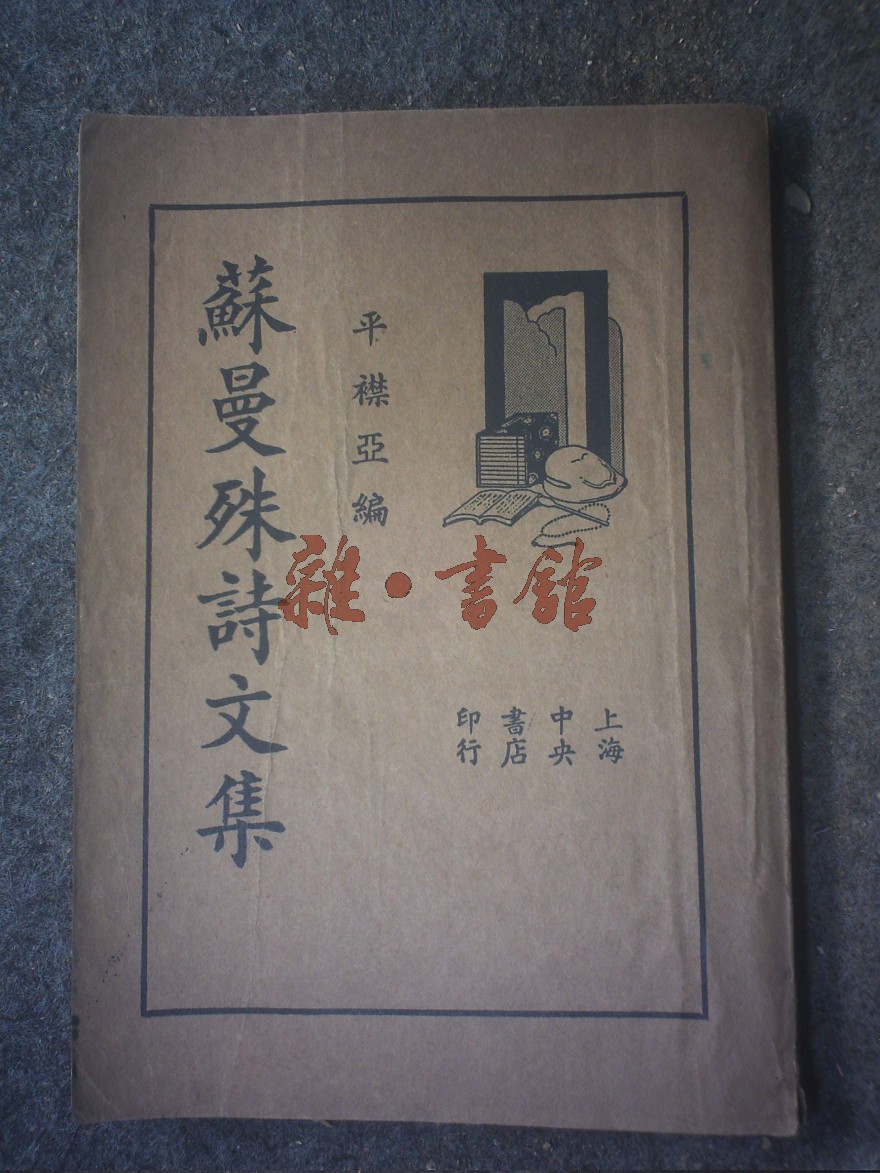 蘇曼殊詩文集
平襟亞編
上海
中央
書店
印行
雜·書館